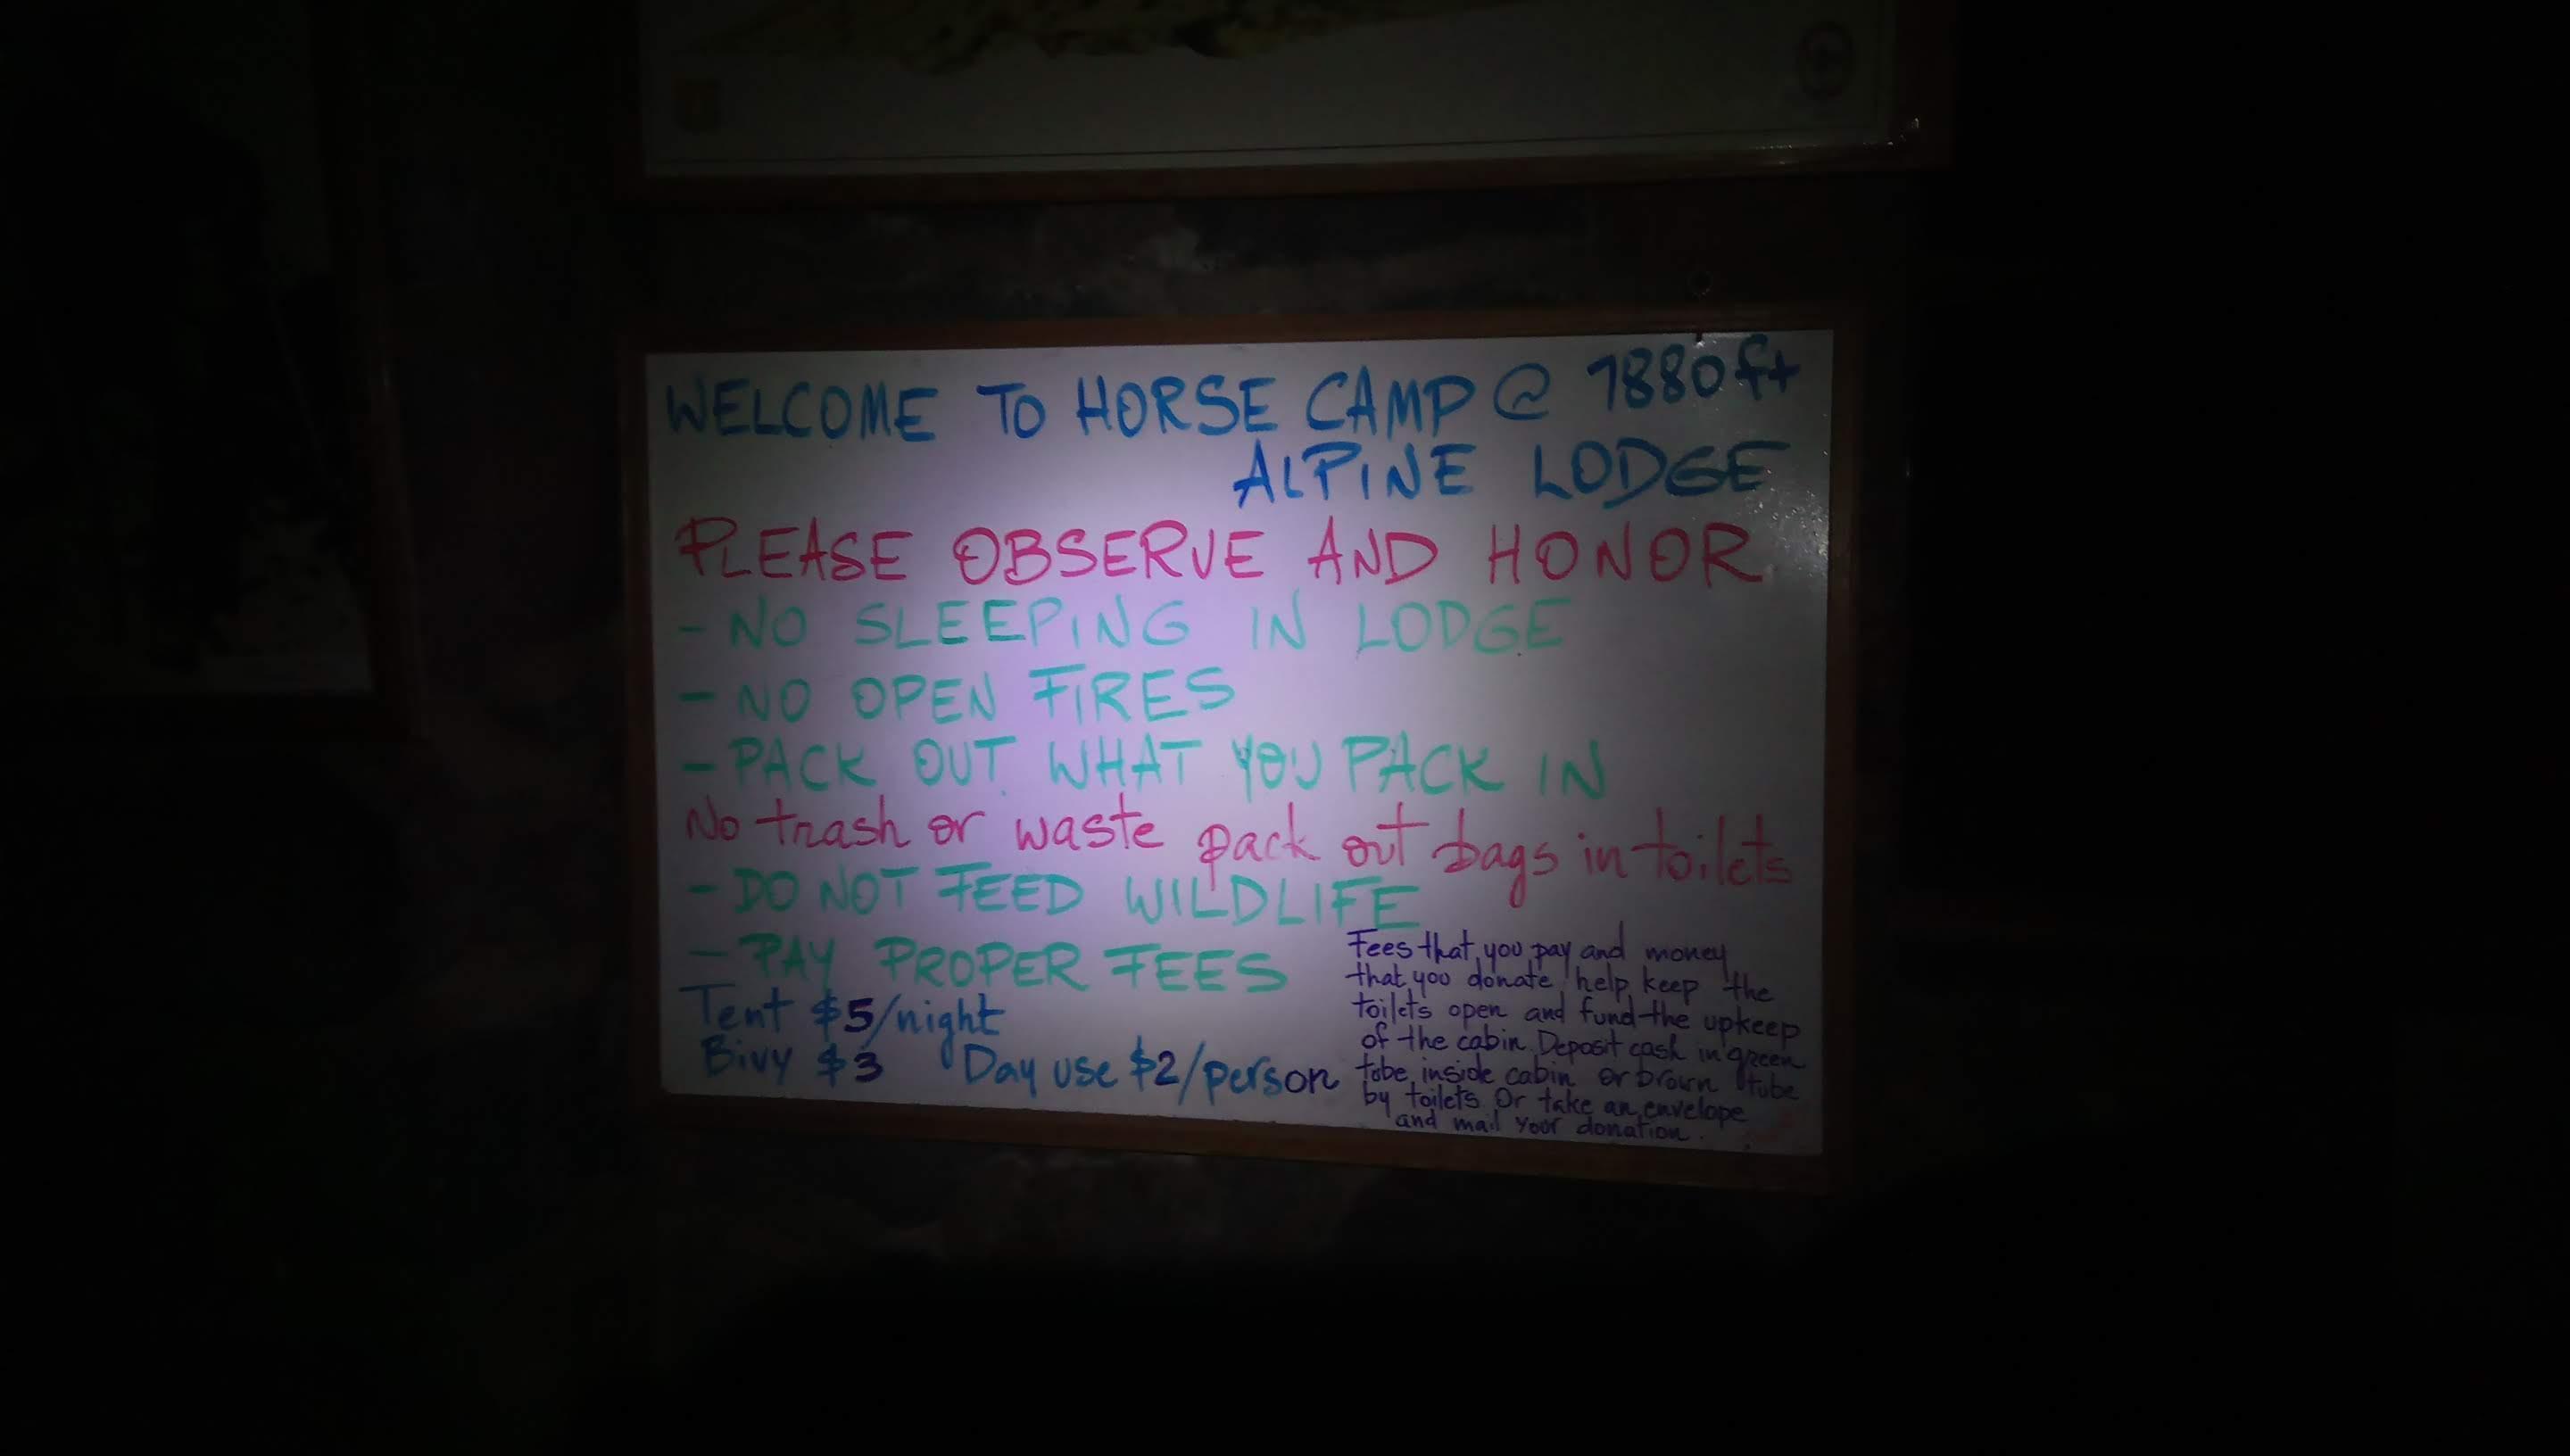 WELCOME TO HORSE CAMP @ 7880 ft
ALPINE LODGE
PLEASE OBSERVE AND HONOR
- NO SLEEPING IN LODGE
- NO OPEN FIRES
- PACK OUT WHAT YOU PACK IN
No trash or waste pack out bags in toilets
- DO NOT FEED WILDLIFE
- PAY PROPER FEES
Tent $5/night
Bivy $3 Day use $2/person
Fees that you pay and money
that you donate help keep the
toilets open and fund the upkeep
of the cabin. Deposit cash in green
tube inside cabin or brown tube
by toilets. Or take an envelope
and mail your donation.